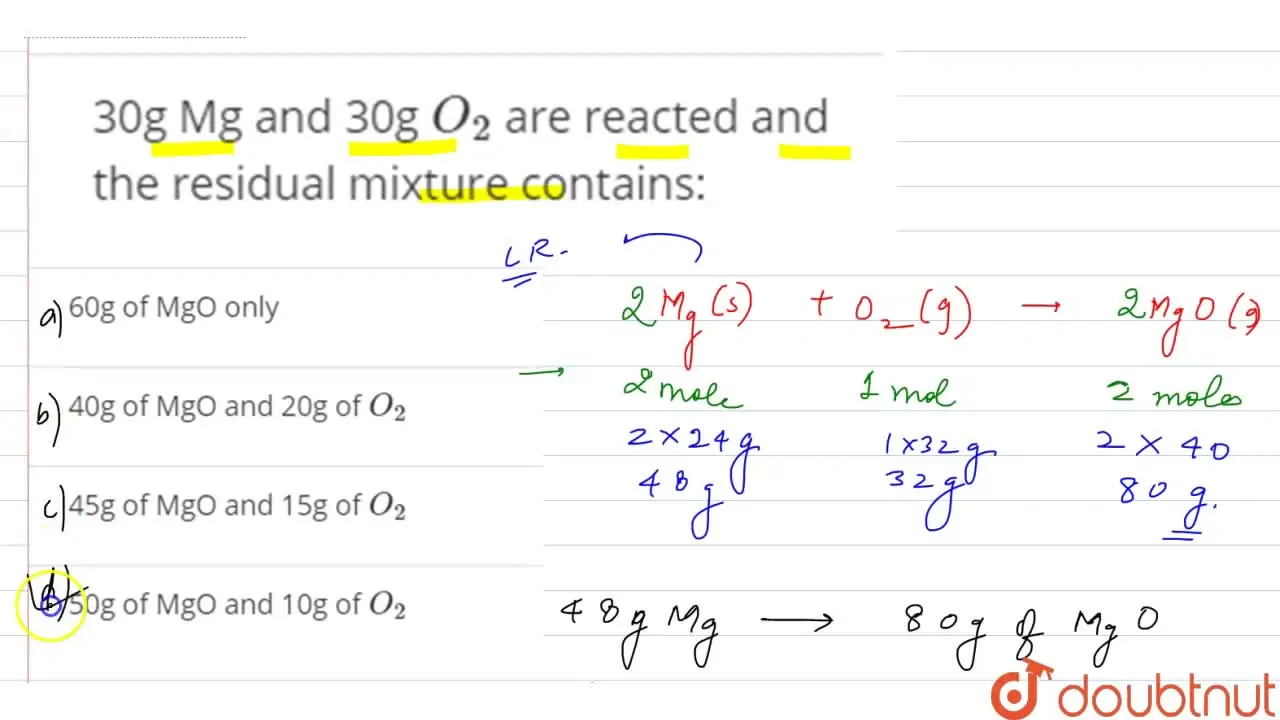 30g Mg and 30g O₂ are reacted and
the residual mixture contains:
LR.
a) 60g of MgO only
2Mg(s) + O₂(g) → 2MgO(g)
b) 40g of MgO and 20g of O₂
→ 2 mole 1 mol 2 moles
2×24g 1×32g 2×40
48g 32g 80g.
c) 45g of MgO and 15g of O₂
d) 50g of MgO and 10g of O₂
48g Mg → 80g of MgO
doubtnut